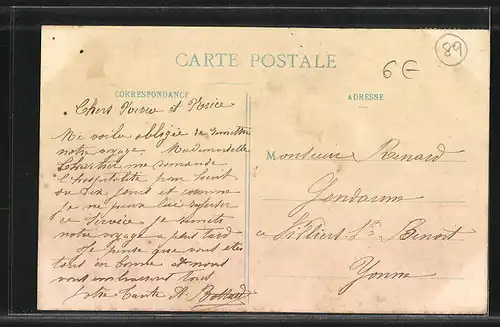 CARTE POSTALE
6€
89
CORRESPONDANCE
ADRESSE
Chers Neveu et Nièce
Me voila obligée de remettre
notre voyage. Mademoiselle
me demande
l'hospitalité pour huit
ou dix jours et comme
je ne peux lui refuser
ce service je remets
notre voyage a plus tard
Je pense que vous etes
tous en bonne et nous
vous embrassons tous
Votre Tante A.
Monsieur Renard
Gendarme
a Villiers St Benoit
Yonne